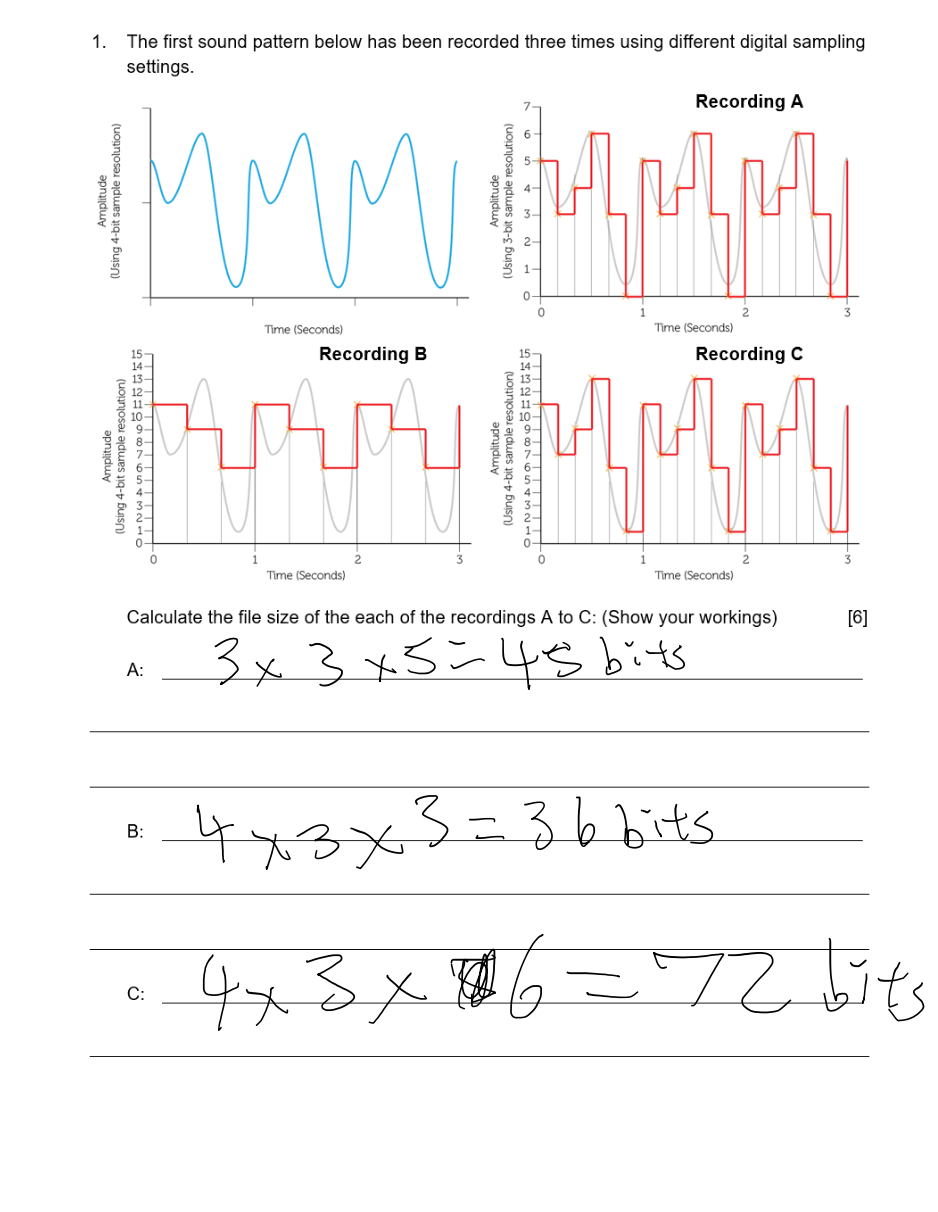 1. The first sound pattern below has been recorded three times using different digital sampling
settings.
Amplitude
(Using 4-bit sample resolution)
Time (Seconds)
Recording A
Amplitude
(Using 3-bit sample resolution)
7
6
5
4
3
2
1
0
0 1 2 3
Time (Seconds)
Recording B
Amplitude
(Using 4-bit sample resolution)
15
14
13
12
11
10
9
8
7
6
5
4
3
2
1
0
0 1 2 3
Time (Seconds)
Recording C
Amplitude
(Using 4-bit sample resolution)
15
14
13
12
11
10
9
8
7
6
5
4
3
2
1
0
0 1 2 3
Time (Seconds)
Calculate the file size of the each of the recordings A to C: (Show your workings) [6]
A: 3 x 3 x 5 = 45 bits
B: 4 x 3 x 3 = 36 bits
C: 4 x 3 x 6 = 72 bits